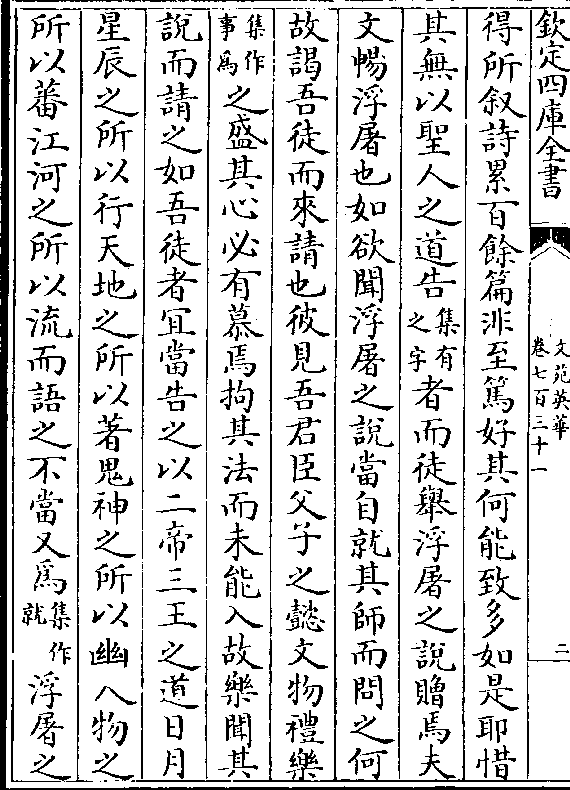 欽定四庫全書
文苑英華
卷七百三十一
二
得所叙詩累百餘篇非至篤好其何能致多如是耶惜
其無以聖人之道告集有之字者而徒舉浮屠之說贈焉夫
文暢浮屠也如欲聞浮屠之說當自就其師而問之何
故謁吾徒而來請也彼見吾君臣父子之懿文物禮樂
集作事爲之盛其心必有慕焉拘其法而未能入故樂聞其
說而請之如吾徒者宜當告之以二帝三王之道日月
星辰之所以行天地之所以著鬼神之所以幽人物之
所以蕃江河之所以流而語之不當又爲集作就浮屠之